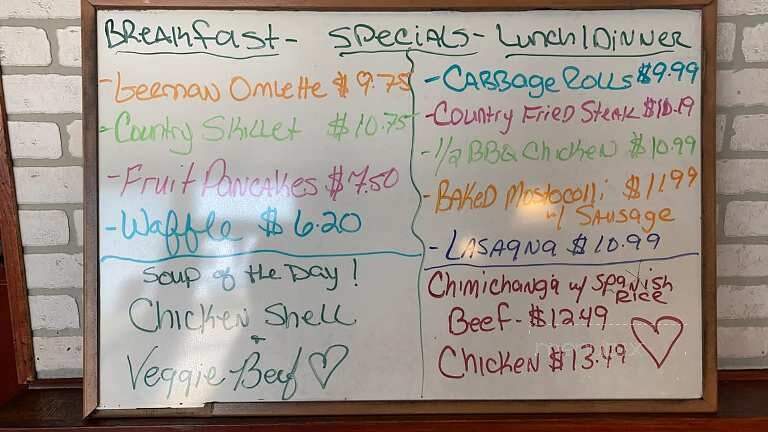 BReakfast - Specials - Lunch/Dinner
- German Omlette $9.75
- Country Skillet $10.75
- Fruit Pancakes $7.50
- Waffle $6.20
Soup of the Day!
Chicken Shell
+
Veggie Beef
- Cabbage Rolls $9.99
- Country Fried Steak $10.19
- 1/2 BBQ Chicken $10.99
- Baked Mostocolli $11.99
w/ Sausage
- Lasagna $10.99
Chimichanga w/ Spanish
Rice
Beef - $12.49
Chicken $13.49